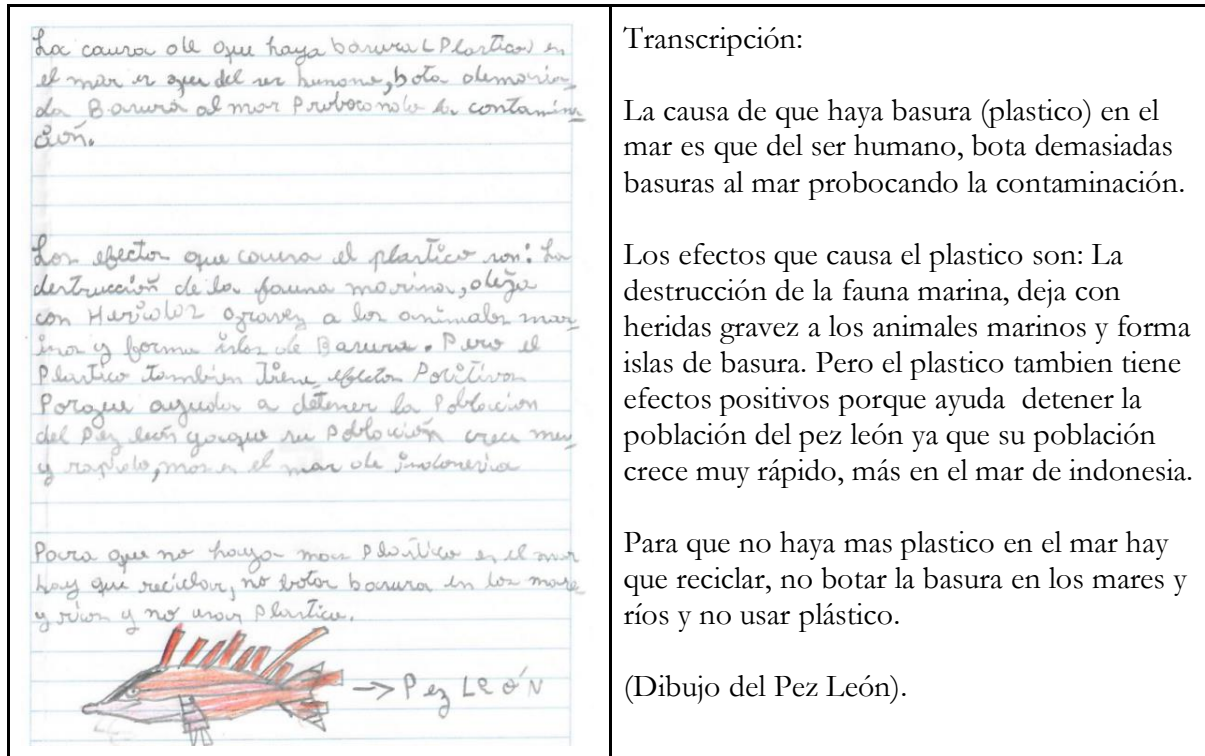 La causa de que haya basura (Plastico) en
el mar es que del ser humano, bota demasia-
da Basura al mar Probocando la contamina
ción.
Los efectos que causa el plastico son: La
destrucción de la fauna marina, deja
con Heridaz gravez a los animales mar-
inos y forma islas de Basura. Pero el
Plastico tambien Tiene efectos Positivos
Porque ayuda a detener la Poblacion
del Pez león yaque su Población crece mu-
y rapido, mas en el mar de indonesia
Para que no haya mas Plastico en el mar
hay que reciclar, no botar basura en los mares
y rios y no usar Plastico.
→ Pez León
Transcripción:
La causa de que haya basura (plastico) en el
mar es que del ser humano, bota demasiadas
basuras al mar probocando la contaminación.
Los efectos que causa el plastico son: La
destrucción de la fauna marina, deja con
heridas gravez a los animales marinos y forma
islas de basura. Pero el plastico tambien tiene
efectos positivos porque ayuda  detener la
población del pez león ya que su población
crece muy rápido, más en el mar de indonesia.
Para que no haya mas plastico en el mar hay
que reciclar, no botar la basura en los mares y
ríos y no usar plástico.
(Dibujo del Pez León).